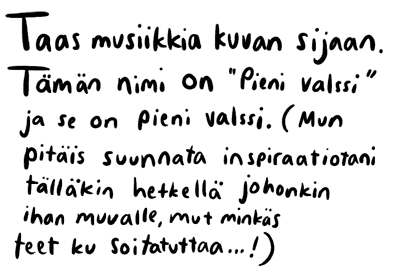 Taas musiikkia kuvan sijaan.
Tämän nimi on "Pieni valssi"
ja se on pieni valssi. (Mun
pitäis suunnata inspiraatiotani
tälläkin hetkellä johonkin
ihan muualle, mut minkäs
teet ku soitatuttaa...!)